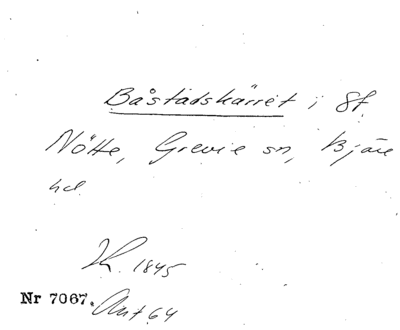 Båstadskärret i St.
Nötte, Grevie sn, Bjäre
hd.
1845
Nr 7067. Ant 64